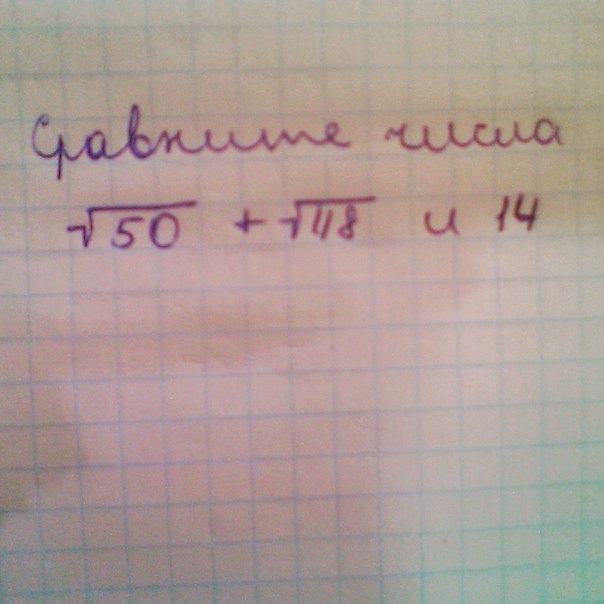 Сравните числа
√50 + √48 и 14